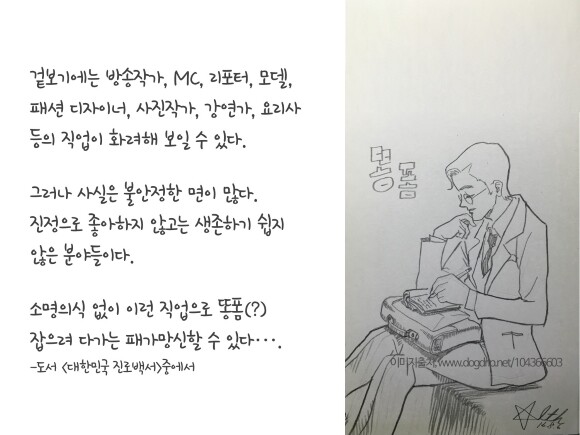 겉보기에는 방송작가, MC, 리포터, 모델,
패션 디자이너, 사진작가, 강연가, 요리사
등의 직업이 화려해 보일 수 있다.
그러나 사실은 불안정한 면이 많다.
진정으로 좋아하지 않고는 생존하기 쉽지
않은 분야들이다.
소명의식 없이 이런 직업으로 똥폼(?)
잡으려 다가는 패가망신할 수 있다···.
-도서 <대한민국 진로백서>중에서
똥폼
이미지출처, www.dogdrip.net/104366603